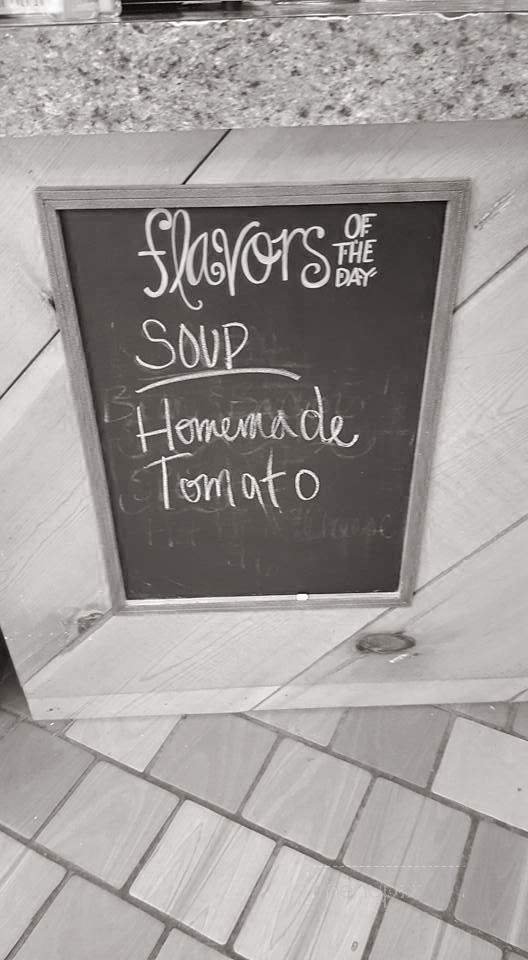 flavors OF THE DAY
SOUP
Homemade
Tomato